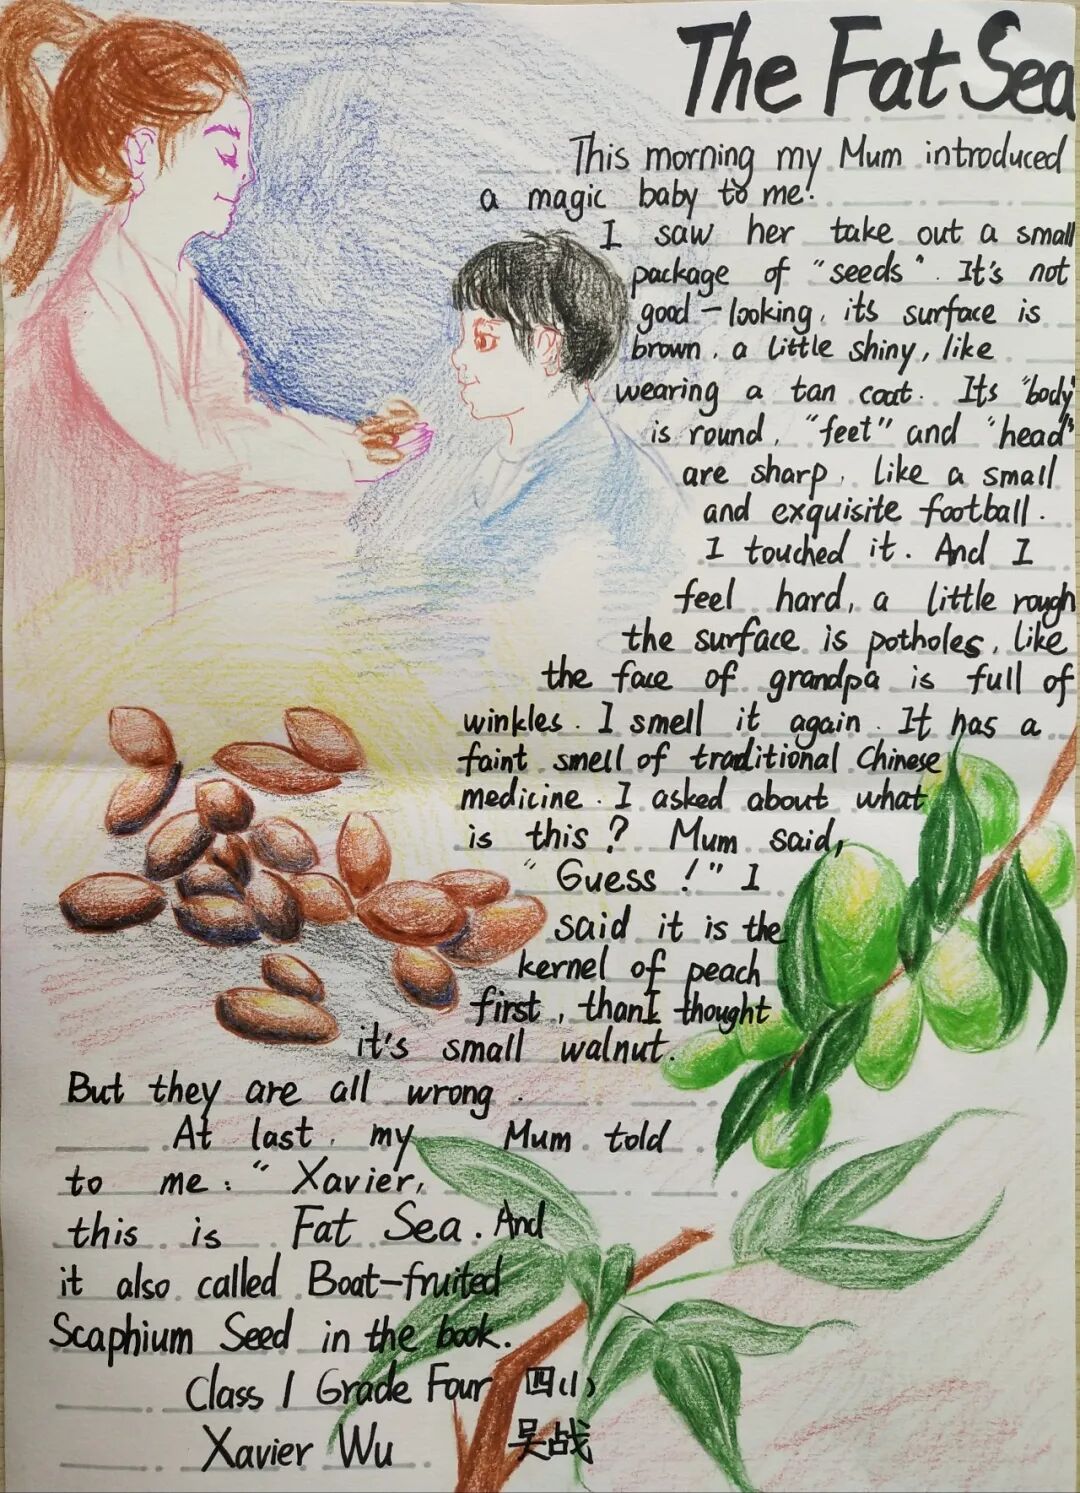 The Fat Sea
This morning my Mum introduced
a magic baby to me!
I saw her take out a small
package of "seeds". It's not
good-looking, its surface is
brown, a little shiny, like
wearing a tan coat. Its "body"
is round, "feet" and "head"
are sharp, like a small
and exquisite football.
I touched it. And I
feel hard, a little rough
the surface is potholes, like
the face of grandpa is full of
winkles. I smell it again. It has a
faint smell of traditional Chinese
medicine. I asked about what
is this? Mum said,
"Guess!" I
said it is the
kernel of peach
first, than I thought
it's small walnut.
But they are all wrong.
At last, my Mum told
to me: "Xavier,
this is Fat Sea. And
it also called Boat-fruited
Scaphium Seed in the book.
Class 1 Grade Four 四(1)
Xavier Wu 吴战